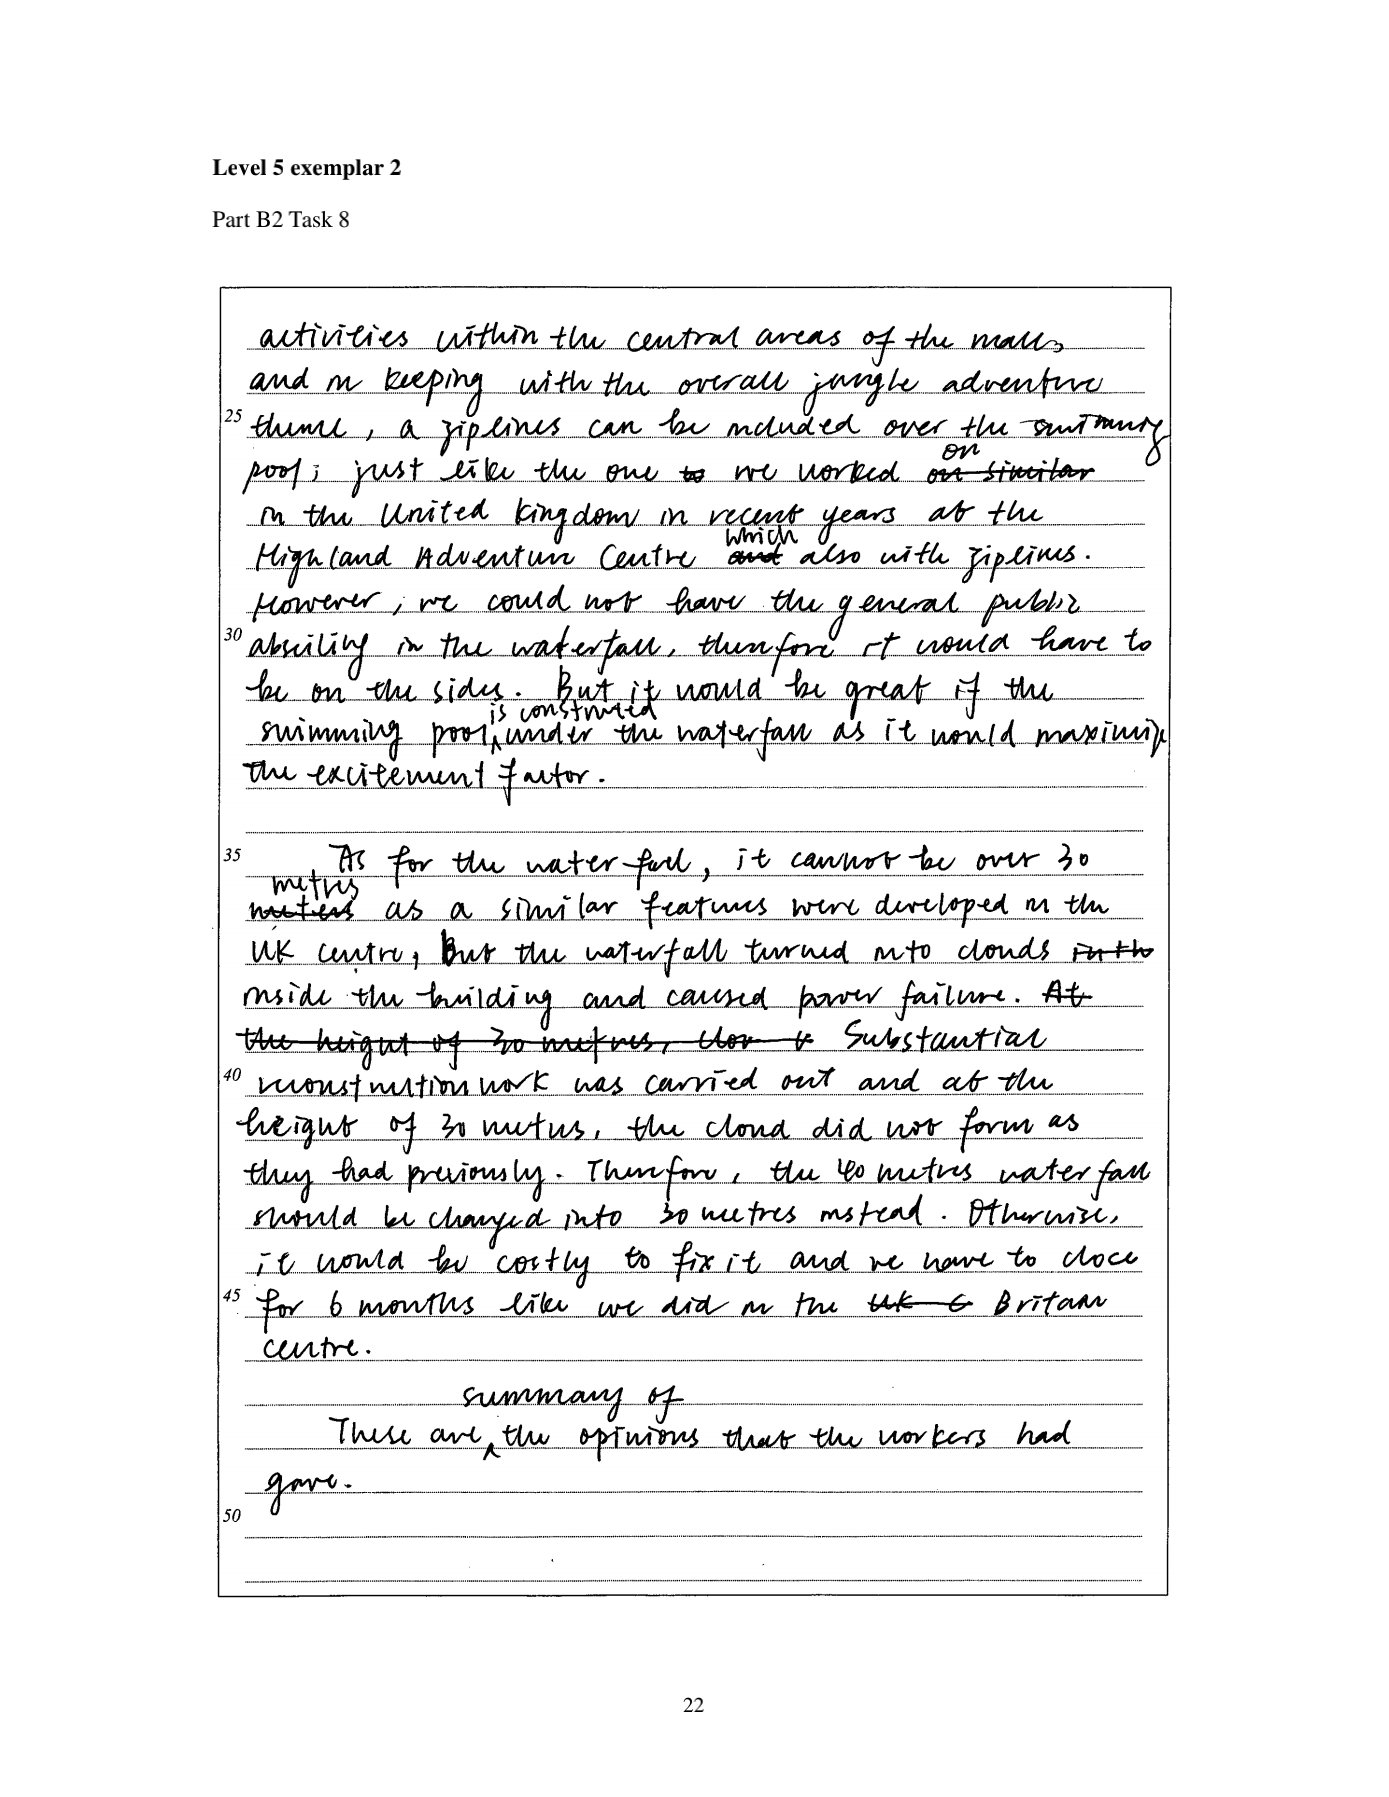 Level 5 exemplar 2
Part B2 Task 8
activities within the central areas of the mall,
and in keeping with the overall jungle adventure
25 theme, a ziplines can be included over the swimming
on
pool, just like the one to we worked on similar
in the United Kingdom in recent years at the
which
Highland Adventure Centre and also with ziplines.
However, we could not have the general public
30 absciling in the waterfall, therefore it would have to
be on the sides. But it would be great if the
is constructed
swimming pool under the waterfall as it would maximize
the excitement factor.
35 As for the waterfall, it cannot be over 30
metres
meters as a similar features were developed in the
UK centre, But the waterfall turned into clouds in th
inside the building and caused power failure. At
the height of 30 metres, clou Substantial
40 reconstruction work was carried out and at the
height of 30 metres, the cloud did not form as
they had previously. Therefore, the 40 metres waterfall
should be changed into 30 metres instead. Otherwise,
it would be costly to fix it and we have to close
45 for 6 months like we did in the UK C Britain
centre.
summary of
These are the opinions that the workers had
gave.
50
22